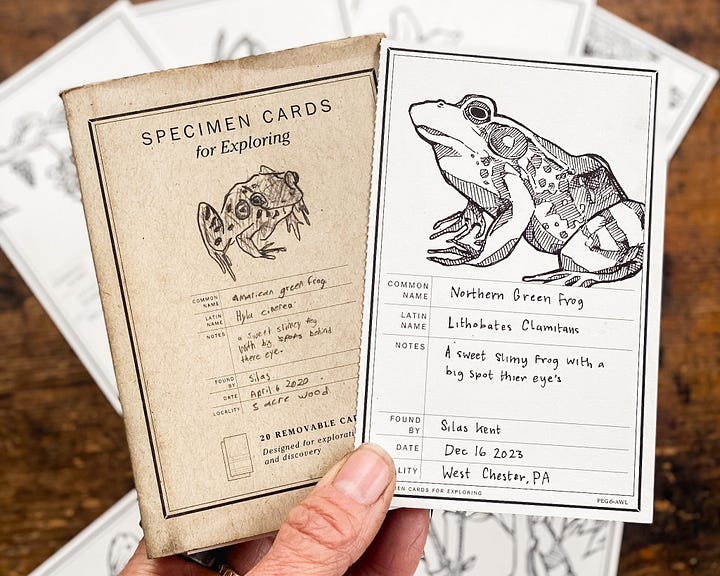 SPECIMEN CARDS
for Exploring
COMMON
NAME
Amarican green frog
LATIN
NAME
Hyla cinerea
NOTES
a sweet slimey frog
with big spots behind
there eye.
FOUND
BY
Silas
DATE
April 6 2020
LOCALITY
5 acre wood
20 REMOVABLE CA
Designed for explorati
and discovery
COMMON
NAME
Northern Green Frog
LATIN
NAME
Lithobates Clamitans
NOTES
A sweet slimy frog with a
big spot thier eye's
FOUND
BY
Silas Kent
DATE
Dec 16 2023
LITY
West Chester, PA
EN CARDS FOR EXPLORING
PEG & AWL